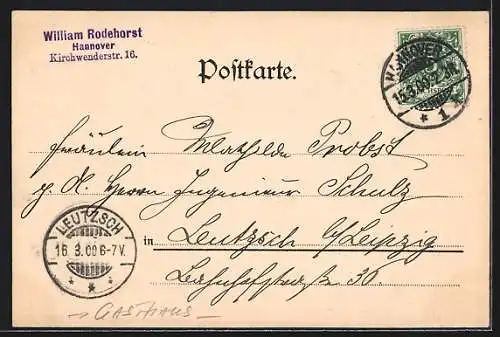 William Rodehorst
Hannover
Kirchwenderstr. 16.
HANNOVER
15.3.00.
* 1 *
Postkarte.
Fräulein Mathilde Probst
p. A. Herrn Ingenieur Schulz
in Leutzsch b/Leipzig
Bahnhofstrasse 30.
LEUTZSCH
16. 3. 00 6-7 V.
GASTHAUS